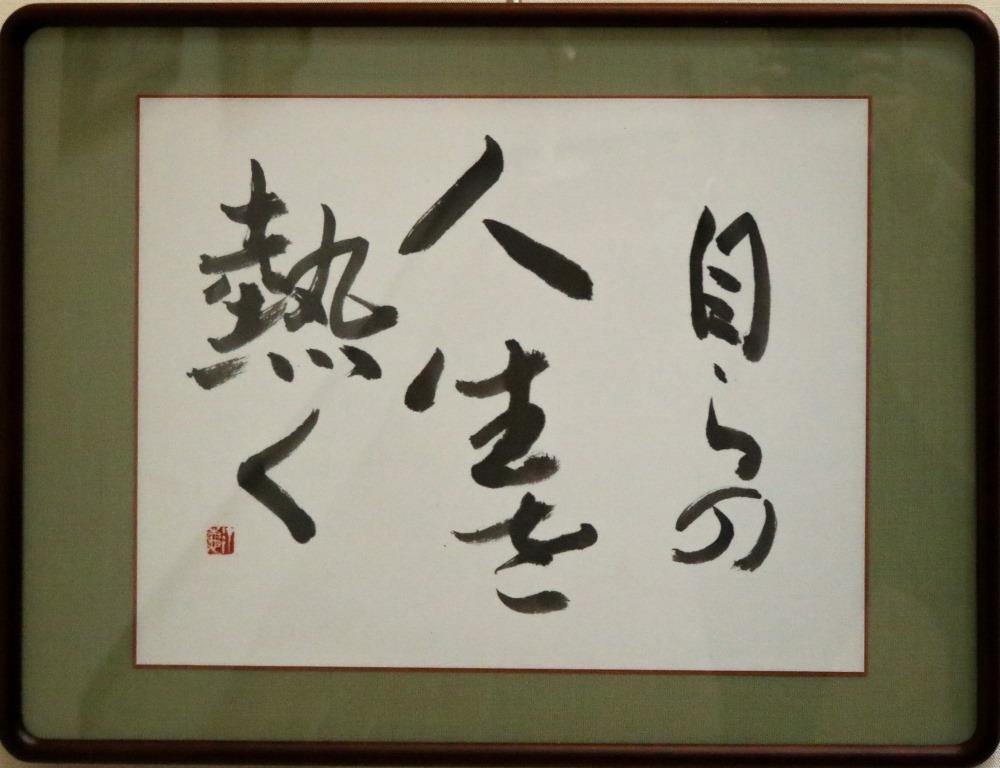 自らの
人生を
熱く